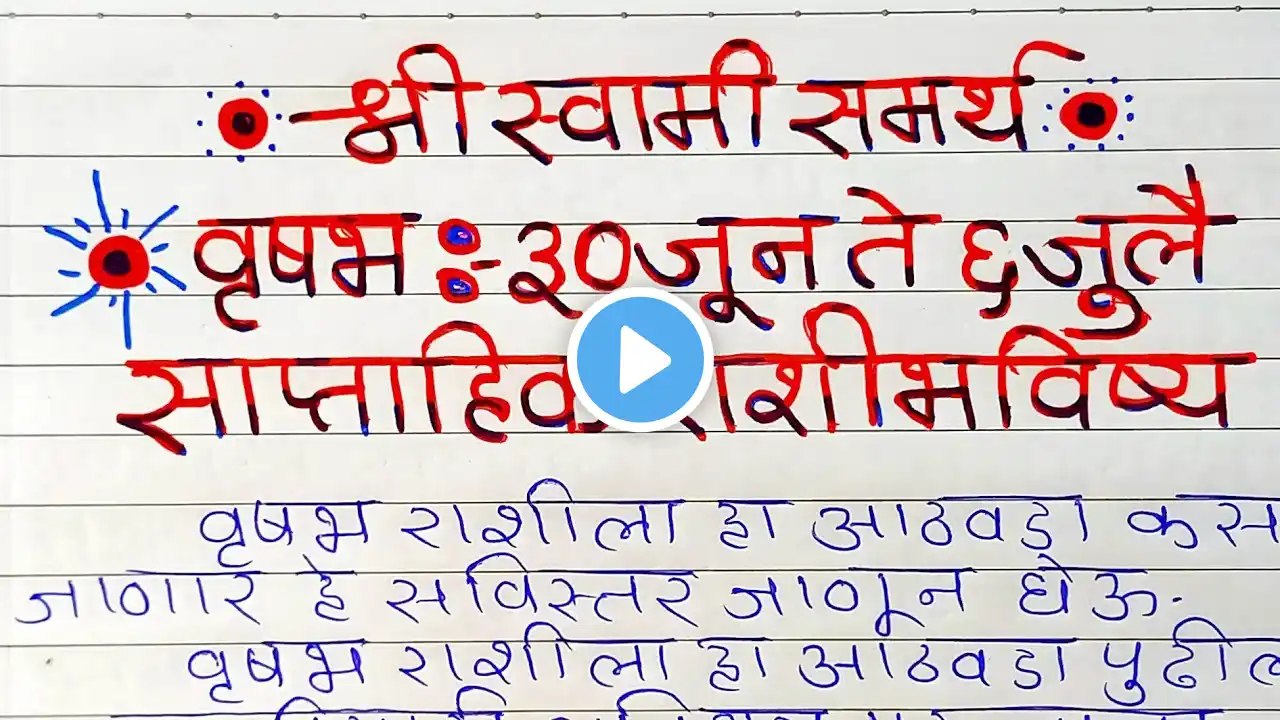 श्री स्वामी समर्थ
वृषभ :- ३० जून ते ६ जुलै
साप्ताहिक राशीभविष्य
वृषभ राशीला हा आठवडा कस
जाणार हे सविस्तर जाणून घेऊ.
वृषभ राशीला हा आठवडा पुढील